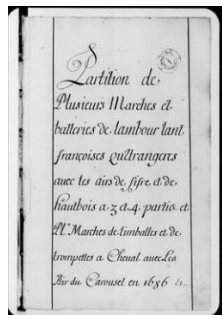 Partition de
Plusieurs Marches et
batteries de tambour tant
françoises qu'Etrangeres
avec les airs de fifre et de
hautbois a 3 et 4 parties et
Pl. Marches de timballes et de
trompettes a Cheval avec Les
Air du Carousel en 1686